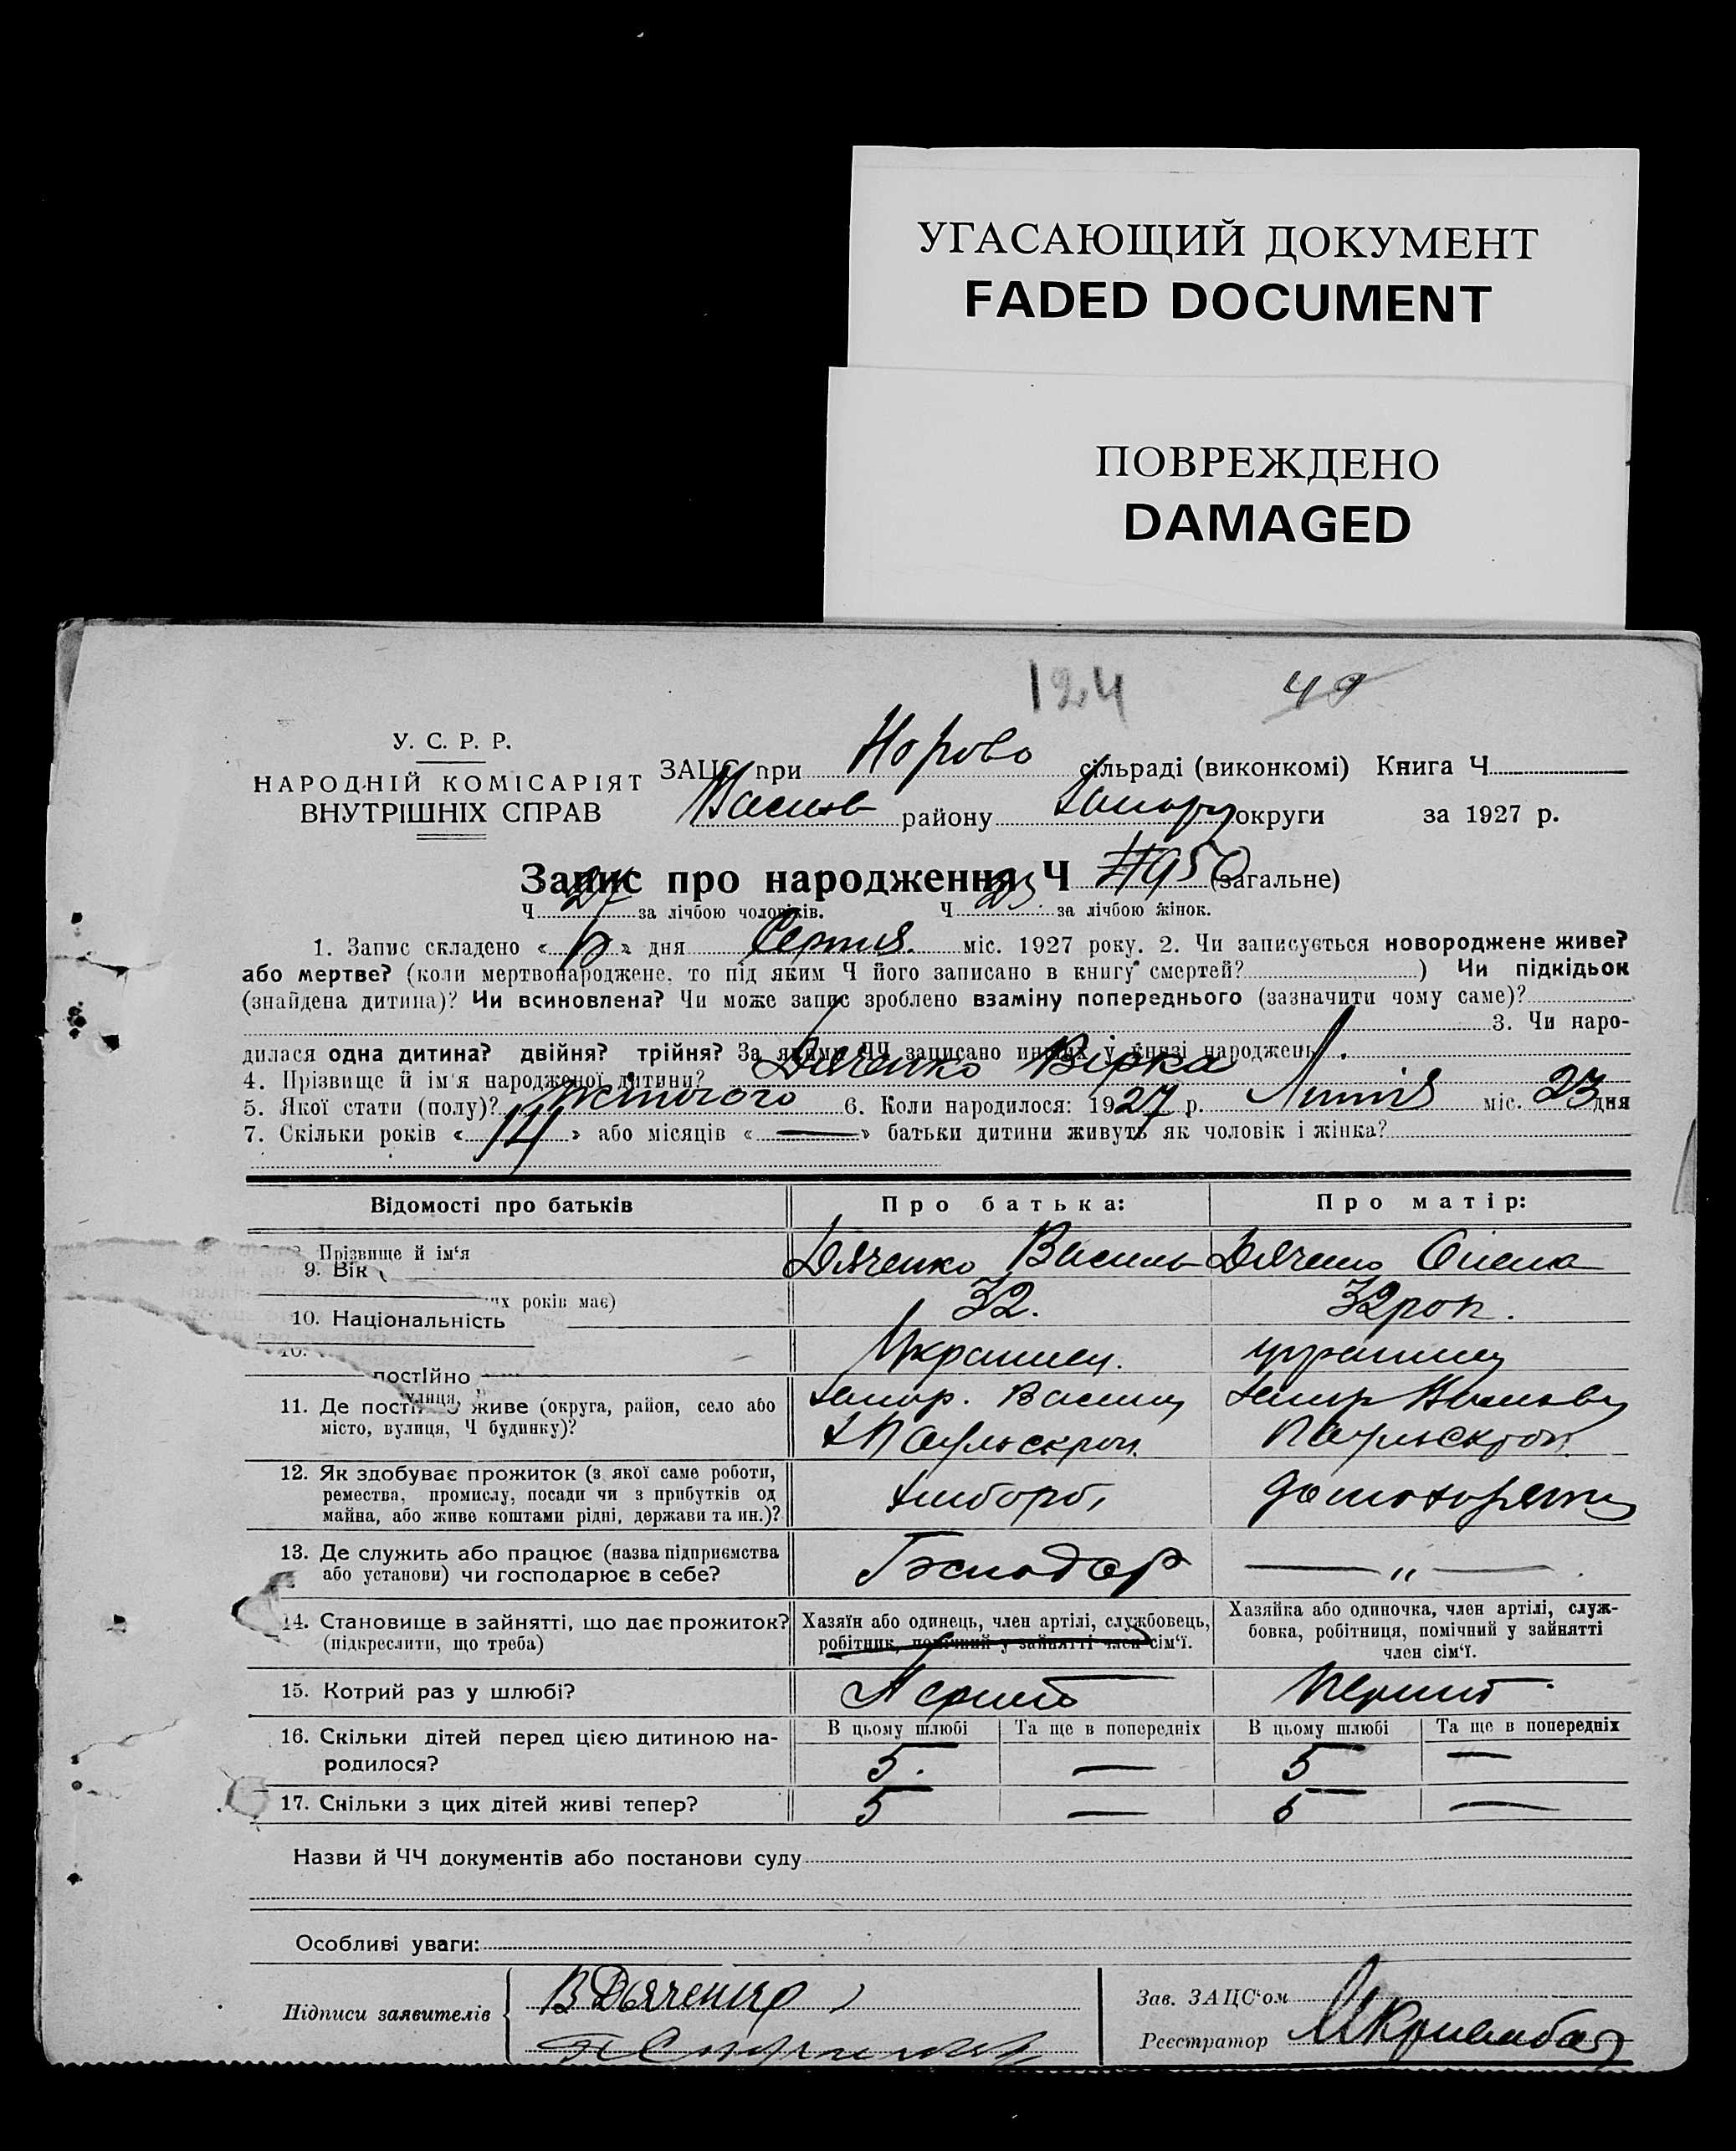 УГАСАЮЩИЙ ДОКУМЕНТ
FADED DOCUMENT
ПОВРЕЖДЕНО
DAMAGED
124 49
У. С. Р. Р.
НАРОДНІЙ КОМІСАРІЯТ
ВНУТРІШНІХ СПРАВ
ЗАЦС при Норово сільраді (виконкомі) Книга Ч
Васил району Запор округи за 1927 р.
Запис про народження Ч 50 (загальне)
Ч 27 за лічбою чоловіків. Ч 23. за лічбою жінок.
1. Запис складено « » дня Серпня. міс. 1927 року. 2. Чи записується новороджене живе?
або мертве? (коли мертвонароджене, то під яким Ч його записано в книгу смертей? ) Чи підкідьок
(знайдена дитина)? Чи всиновлена? Чи може запис зроблено взаміну попереднього (зазначити чому саме)?
3. Чи наро-
дилася одна дитина? двійня? трійня? За якими ЧЧ записано инших у книзі народжень
4. Прізвище й ім'я народженої дитини? Дяченко Вірка
5. Якої стати (полу)? жіночого 6. Коли народилося: 1927 р. Липня міс. 23 дня
7. Скільки років « 14 » або місяців « — » батьки дитини живуть як чоловік і жінка?
Відомості про батьків Про батька: Про матір:
Прізвище й ім'я Дяченко Василь Дяченко Олена
9. Вік
их років має) 32. 32 рок.
10. Національність Украинец. украинец
10.
постійно
улиця,
11. Де постійно живе (округа, район, село або Запор. Васил Запор
місто, вулиця, Ч будинку)?
12. Як здобуває прожиток (з якої саме роботи, хлібороб,
ремества, промислу, посади чи з прибутків од
майна, або живе коштами рідні, держави та ин.)?
13. Де служить або працює (назва підприємства Господар — „ —
або установи) чи господарює в себе?
14. Становище в зайнятті, що дає прожиток? Хазяїн або одинець, член артілі, службовець, Хазяйка або одиночка, член артілі, служ-
(підкреслити, що треба) робітник, помічний у зайнятті член сім'ї. бовка, робітниця, помічний у зайнятті
член сім'ї.
15. Котрий раз у шлюбі? Перший Перший
16. Скільки дітей перед цією дитиною на- В цьому шлюбі Та ще в попередніх В цьому шлюбі Та ще в попередніх
родилося? 5. — 5 —
17. Скільки з цих дітей живі тепер? 5 — 5 —
Назви й ЧЧ документів або постанови суду
Особливі уваги:
Підписи заявителів В Дяченко
Зав. ЗАЦС'ом
Реєстратор